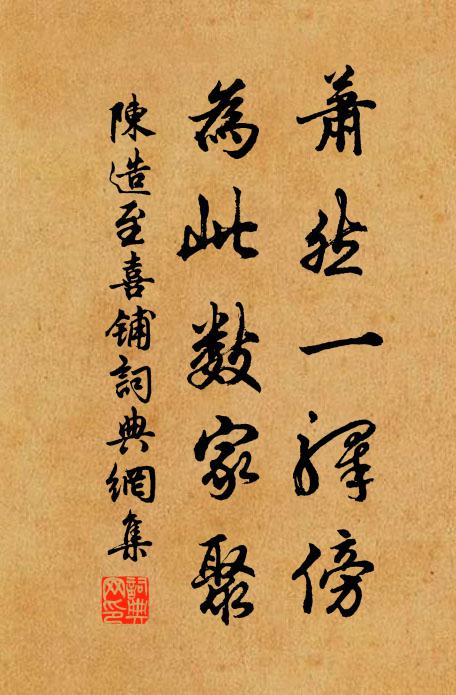 蕭然一驛傍
為此數家聚
陳造至喜鋪詞典網集
詞典网印